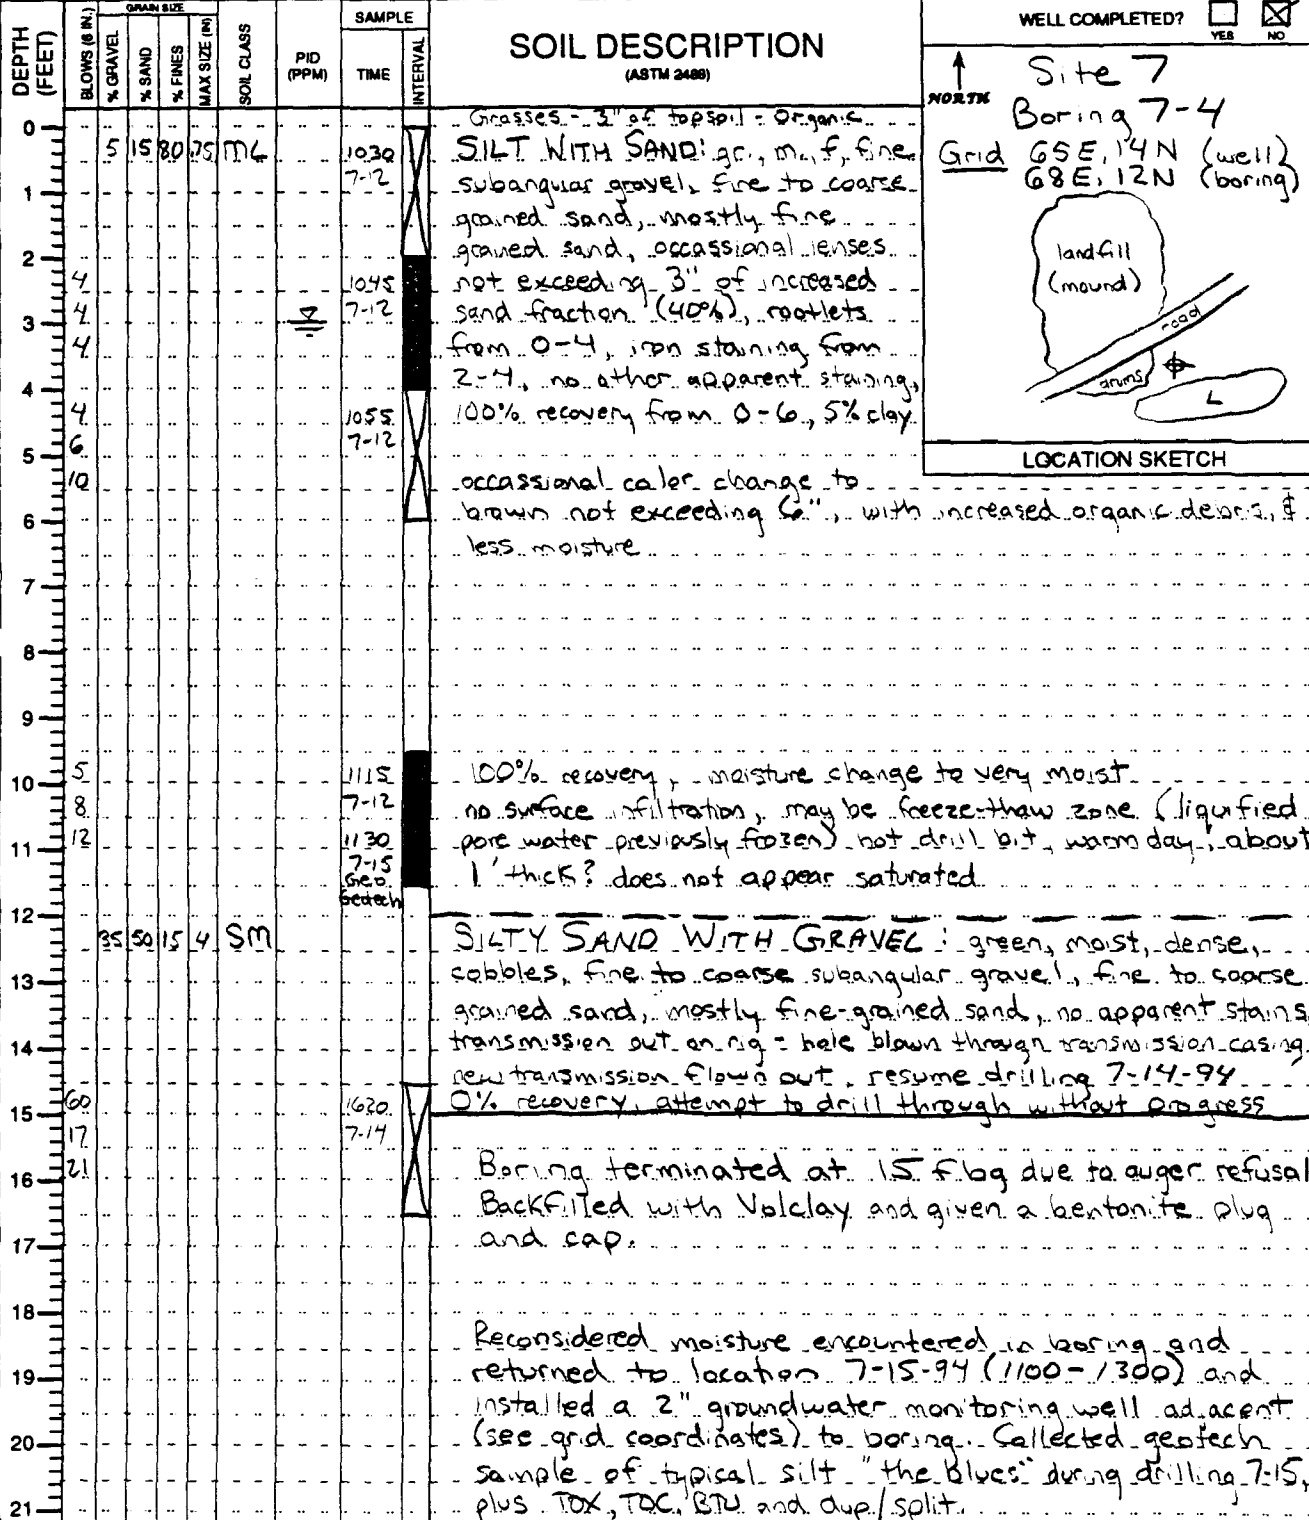 DEPTH (FEET)
BLOWS (6 IN.)
GRAIN SIZE
% GRAVEL
% SAND
% FINES
MAX SIZE (IN)
SOIL CLASS
PID (PPM)
SAMPLE
TIME
INTERVAL
SOIL DESCRIPTION
(ASTM 2488)
WELL COMPLETED?
YES
NO
NORTH
Site 7
Boring 7-4
Grid 65E, 14N (well)
68E, 12N (boring)
landfill
(mound)
road
drums
L
LOCATION SKETCH
0
Grasses - 3" of topsoil - Organic
5 15 80 .75 ML 1030 SILT WITH SAND: gr., m., f, fine
7-12
1
subangular gravel, fine to coarse
grained sand, mostly fine
2
grained sand, occassional lenses
4 1045 not exceeding 3" of increased
4 7-12 sand fraction (40%), rootlets
3
4 from 0-4, iron staining from
4
2-4, no other apparent staining,
4 1055 100% recovery from 0-6, 5% clay
6 7-12
5
10 occassional color change to
6
brown not exceeding 6", with increased organic debris, &
less moisture
7
8
9
10
5 1115 100% recovery, moisture change to very moist
8 7-12 no surface infiltration, may be freeze-thaw zone (liquified
12 1130 pore water previously frozen) not drill bit, warm day, about
11
7-15 1' thick? does not appear saturated
Geo
Geotech
12
35 50 15 4 SM SILTY SAND WITH GRAVEL: green, moist, dense,
13
cobbles, fine to coarse subangular gravel, fine to coarse
grained sand, mostly fine-grained sand, no apparent stains
14
transmission out on rig - hole blown through transmission casing
new transmission flown out, resume drilling 7-14-94
60 1620 0% recovery, attempt to drill through without progress
15
17 7-14
21 Boring terminated at 15 fbg due to auger refusal
16
Backfilled with Volclay and given a bentonite plug
17
and cap.
18
Reconsidered moisture encountered in boring and
19
returned to location 7-15-94 (1100-1300) and
installed a 2" groundwater monitoring well adjacent
20
(see grid coordinates) to boring. Collected geotech
sample of typical silt "the blues" during drilling 7-15,
21
plus TOX, TOC, BTU and dup/split.